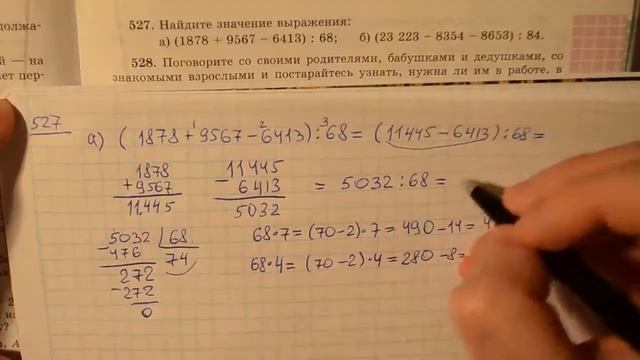 527. Найдите значение выражения:
а) (1878 + 9567 − 6413) : 68; б) (23 223 − 8354 − 8653) : 84.
528. Поговорите со своими родителями, бабушками и дедушками, со
знакомыми взрослыми и постарайтесь узнать, нужна ли им в работе, в
527
а) (1878 +¹ 9567 −² 6413) :³ 68 = (11445 − 6413) : 68 =
= 5032 : 68 =
1878
+ 9567
11445
11445
− 6413
5032
5032 | 68
− 476 74
272
− 272
0
68·7 = (70−2)·7 = 490 − 14 = 4
68·4 = (70−2)·4 = 280 − 8 =